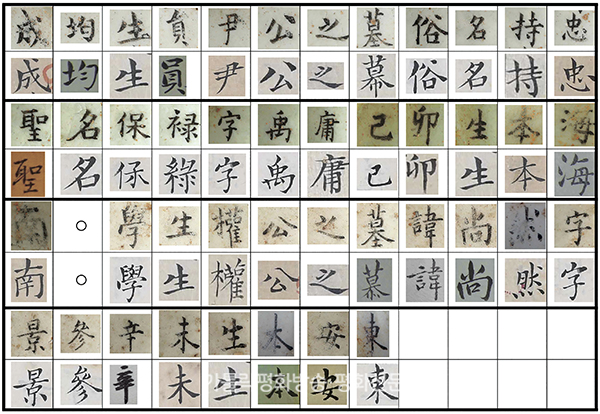 成 均 生 員 尹 公 之 墓 俗 名 持 忠
成 均 生 員 尹 公 之 幕 俗 名 持 忠
聖 名 保 禄 字 禹 庸 己 卯 生 本 海
聖 名 保 綠 字 禹 庸 己 卯 生 本 海
南 ○ 學 生 權 公 之 墓 諱 尚 然 字
南 ○ 學 生 權 公 之 慕 諱 尚 然 字
景 參 辛 未 生 本 安 東
景 參 辛 未 生 本 安 東
가톨릭평화방송·평화신문